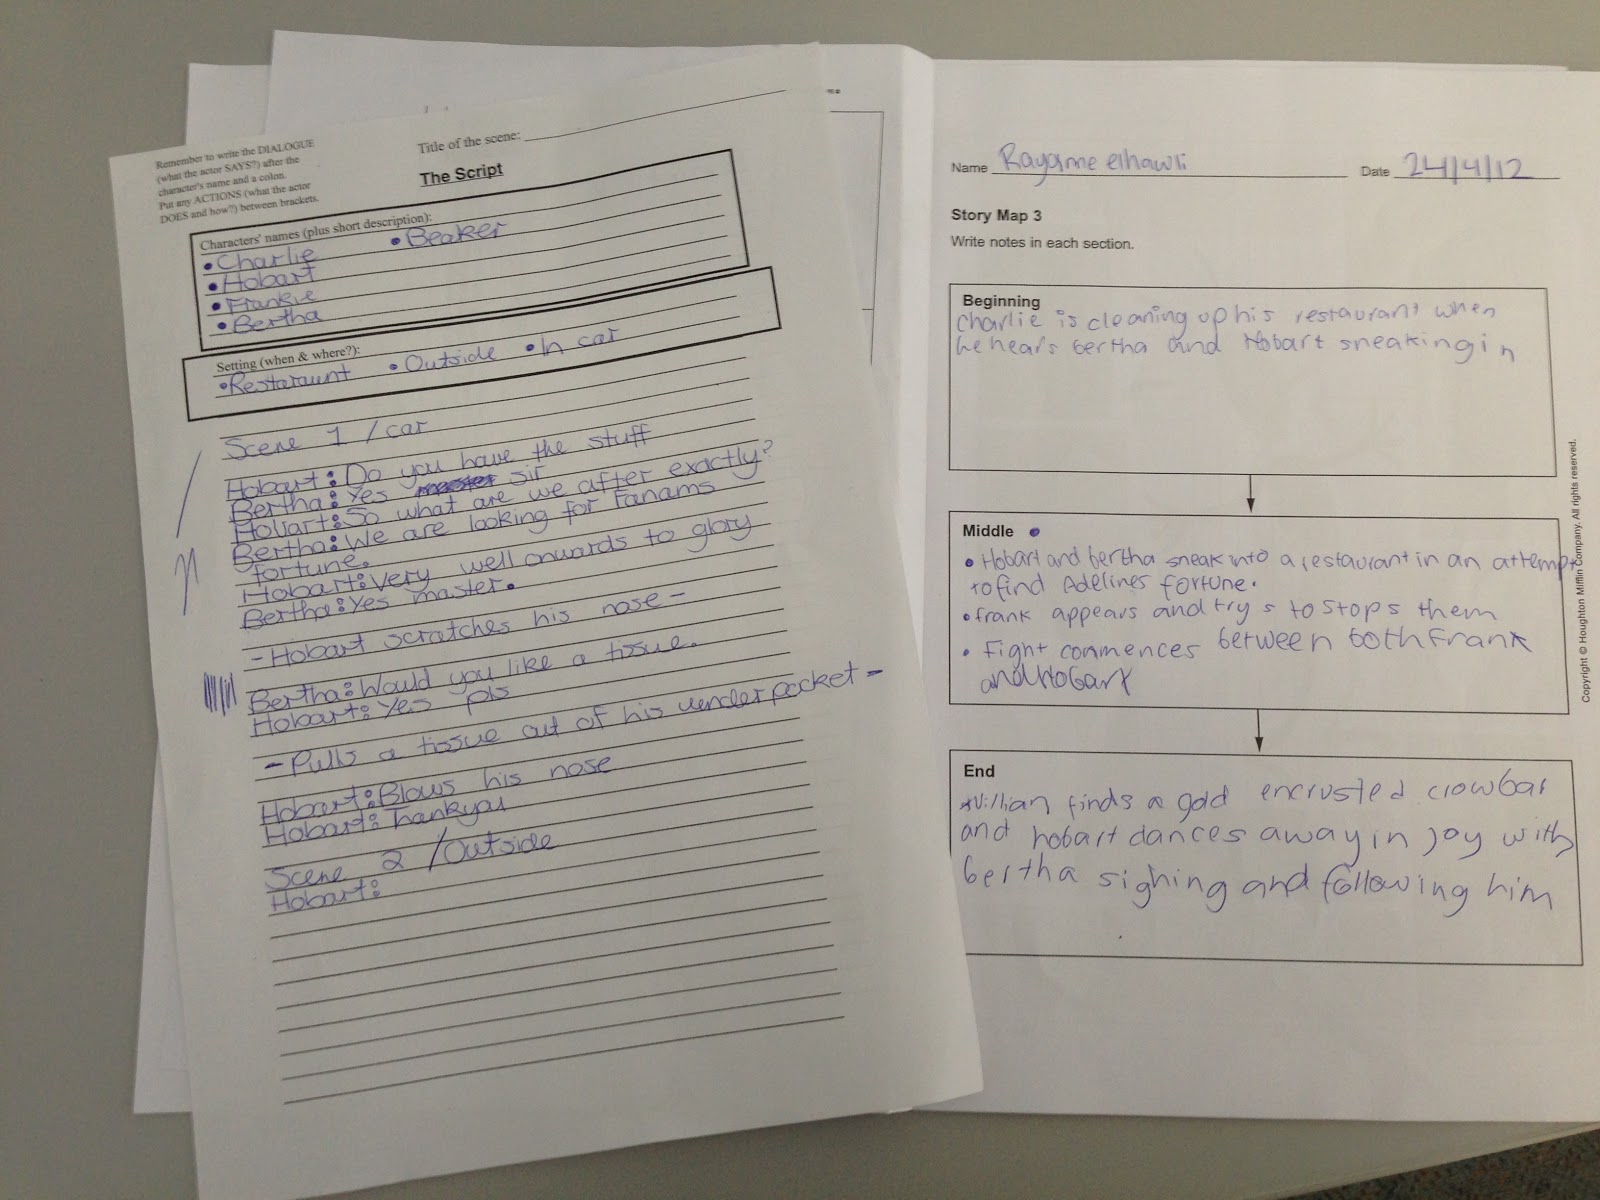 Remember to write the DIALOGUE
(what the actor SAYS?) after the
character's name and a colon.
Put any ACTIONS (what the actor
DOES and how?) between brackets.
Title of the scene:
The Script
Characters' names (plus short description):
• Charlie • Beaker
• Hobart
• Frankie
• Bertha
Setting (when & where?):
• Restaraunt • Outside • In car
Scene 1 / car
Hobart: Do you have the stuff
Bertha: Yes sir
Hobart: So what are we after exactly?
Bertha: We are looking for Fanams
fortune.
Hobart: Very well onwards to glory
Bertha: Yes master.
- Hobart scratches his nose -
Bertha: Would you like a tissue.
Hobart: Yes pls
- Pulls a tissue out of his underpocket -
Hobart: Blows his nose
Hobart: Thankyou
Scene 2 / Outside
Hobart:
Name Rayanne elhawli Date 24/4/12
Story Map 3
Write notes in each section.
Beginning
Charlie is cleaning up his restaurant when
he hears bertha and Hobart sneaking in
Middle
• Hobart and bertha sneak into a restaurant in an attempt
to find Adelines fortune.
• frank appears and try s to stops them
• Fight commences between both frank
and Hobart
End
finds a gold encrusted crowbar
and hobart dances away in joy with
bertha sighing and following him
Copyright © Houghton Mifflin Company. All rights reserved.